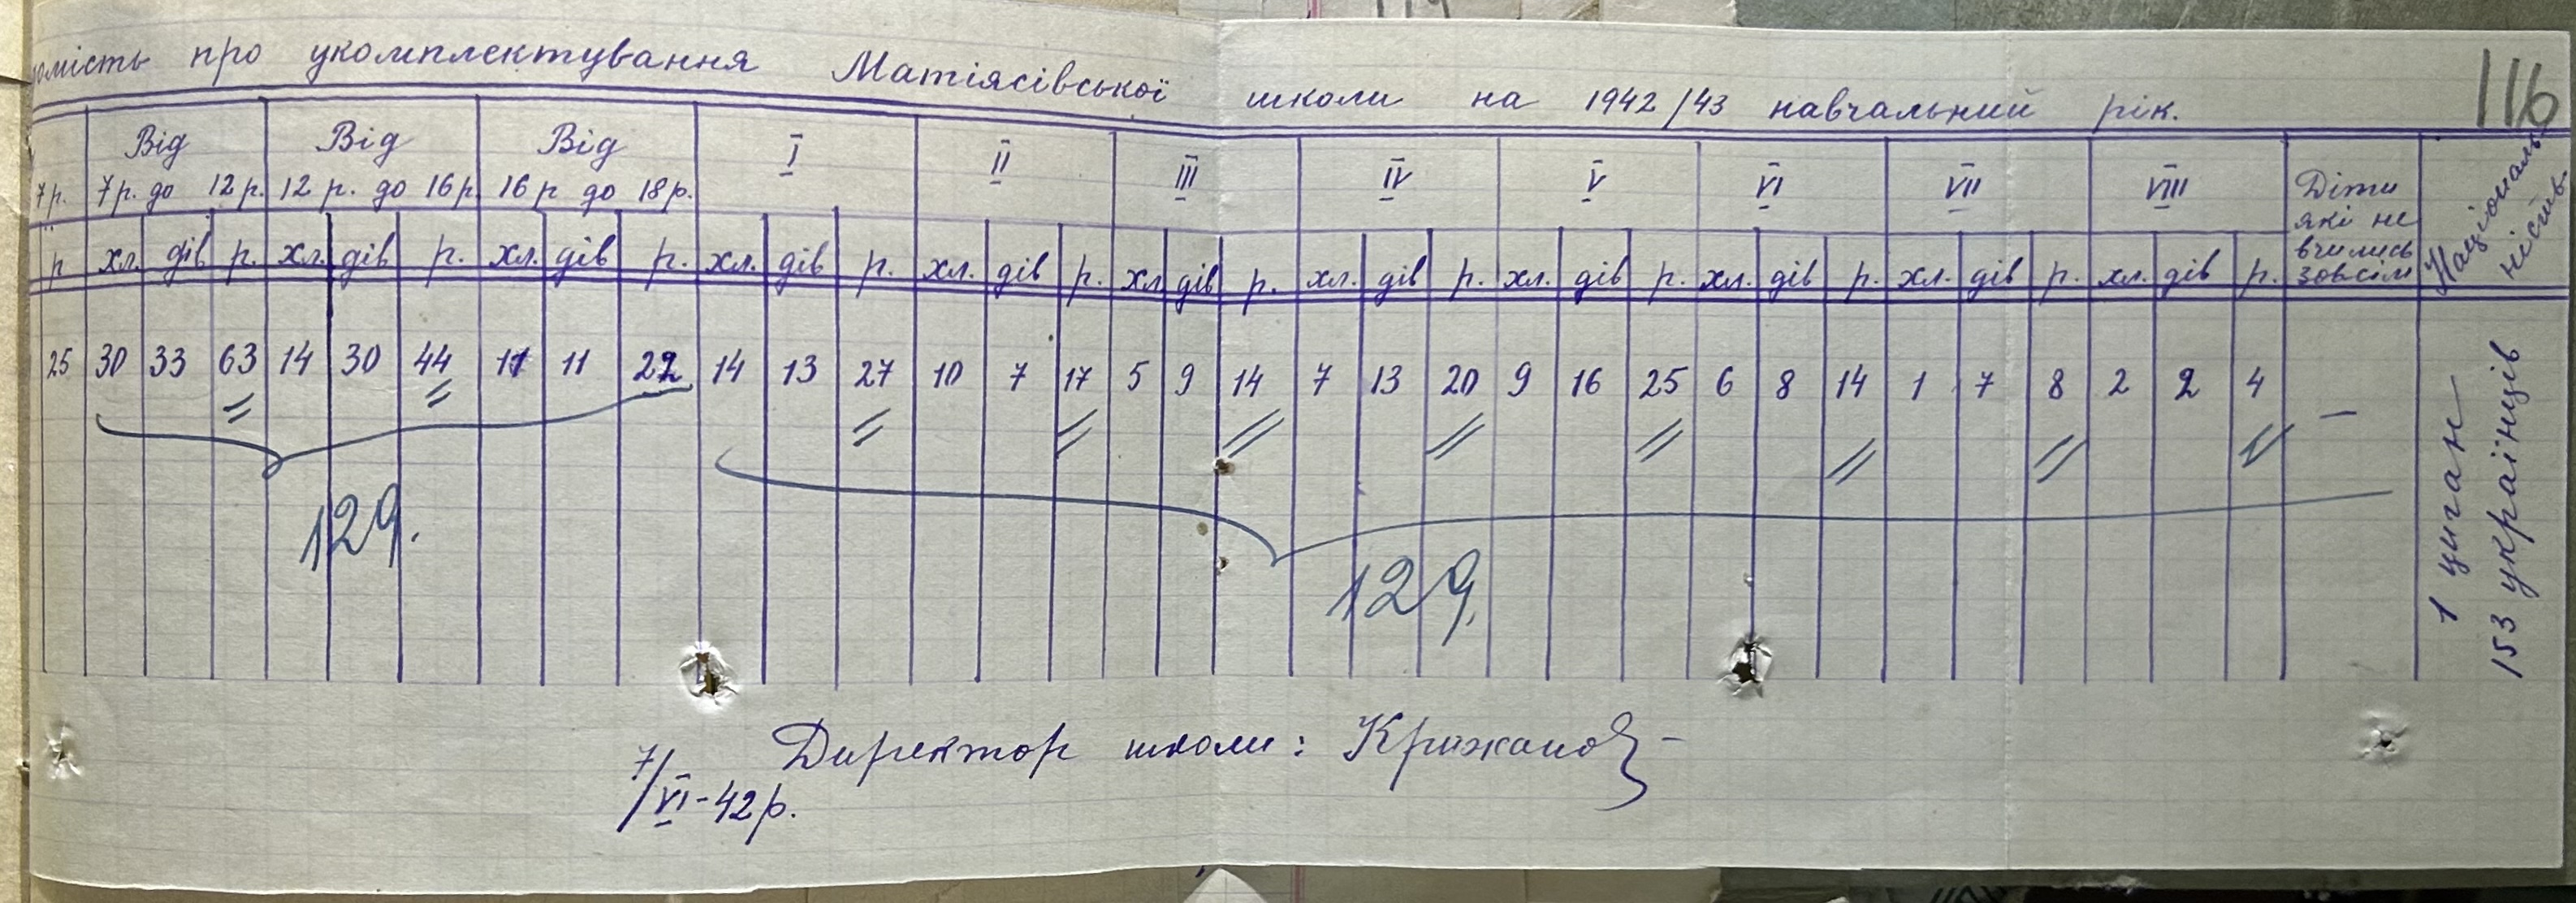 омість про укомплектування Матіясівської школи на 1942/43 навчальний рік.
116
7 р. Від 7 р. до 12 р. Від 12 р. до 16 р. Від 16 р до 18 р. I II III IV V VI VII VIII Діти які не вчились зовсім Національність
р хл. дів р. хл. дів р. хл. дів р. хл. дів р. хл. дів р. хл дів р. хл. дів р. хл. дів р. хл. дів р. хл. дів р. хл. дів р.
25 30 33 63 14 30 44 11 11 22 14 13 27 10 7 17 5 9 14 7 13 20 9 16 25 6 8 14 1 7 8 2 2 4 —
1 циган
153 українців
129.
129.
Директор школи: Крижано
7/VI-42 р.